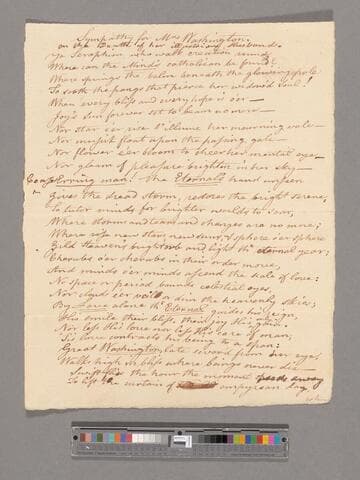 Sympathy for Mrs Washington.
on the Death of her illustrious Husband.
Ye Seraphim who walk creation round
Where can the Mind's catholicon be found?
Where springs the balm beneath the glowing pole
To sooth the pangs that pierce her widow'd soul!
When every bliss and every hope is o'er —
Joy's Sun forever set to beam no more —
Nor star e'er rise t'illume her mourning vale —
Nor musick float upon the passing gale —
Nor flower e'er bloom to cheer her mental eye —
Nor gleam of pleasure brighten in her sky —
Cease Erring man! The Eternal's hand unseen
Gives the dread storm, restores the bright serene,
To tutor minds for brighter worlds to soar,
Where storms and team and changes are no more;
Where new stars new suns, sphere o'er sphere
Gild Heaven's bright and light th' eternal year;
Cherubs o'er cherubs in their order move,
And minds o'er minds ascend the scale of love:
No space or period bounds celestial eyes,
Nor clouds e'er veil a dim the heavenly skies;
By Love alone th' Eternal guides his reign,
His smile their bliss, their joy his
Nor less His love nor less his care of man;
Tis love contracts his being to a span:
Great Washington, late moved from our eyes
Walks high in bliss where beings never die
Swift flit the hour the moment away
To lift the curtains of empyrean day